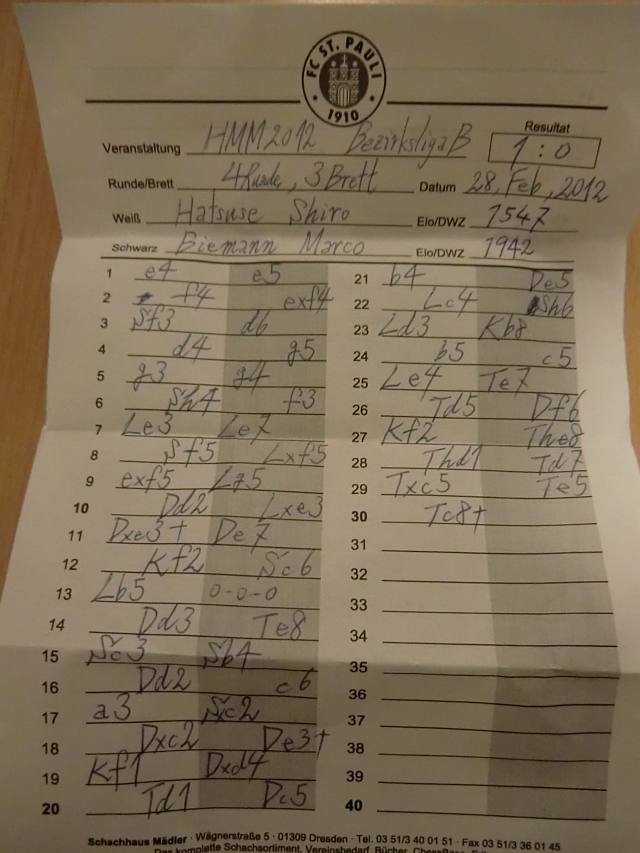 FC ST. PAULI
1910
Resultat
Veranstaltung HMM2012 BezirksligaB 1:0
Runde/Brett 4Runde, 3Brett Datum 28, Feb, 2012
Weiß Hatsuse Shiro Elo/DWZ 1547
Schwarz Biemann Marco Elo/DWZ 1942
1 e4 e5
2 f4 exf4
3 Sf3 d6
4 d4 g5
5 g3 g4
6 Sh4 f3
7 Le3 Le7
8 Sf5 Lxf5
9 exf5 Lg5
10 Dd2 Lxe3
11 Dxe3+ De7
12 Kf2 Sc6
13 Lb5 0-0-0
14 Dd3 Te8
15 Sc3 Sb4
16 Dd2 c6
17 a3 Sxc2
18 Dxc2 De3+
19 Kf1 Dxd4
20 Td1 Dc5
21 b4 De5
22 Lc4 Sh6
23 Ld3 Kb8
24 b5 c5
25 Le4 Te7
26 Td5 Df6
27 Kf2 The8
28 Thd1 Td7
29 Txc5 Te5
30 Tc8+
31
32
33
34
35
36
37
38
39
40
Schachhaus Mädler · Wägnerstraße 5 · 01309 Dresden · Tel. 03 51/3 40 01 51 · Fax 03 51/3 36 01 45
Das komplette Schachsortiment, Vereinsbedarf, Bücher,